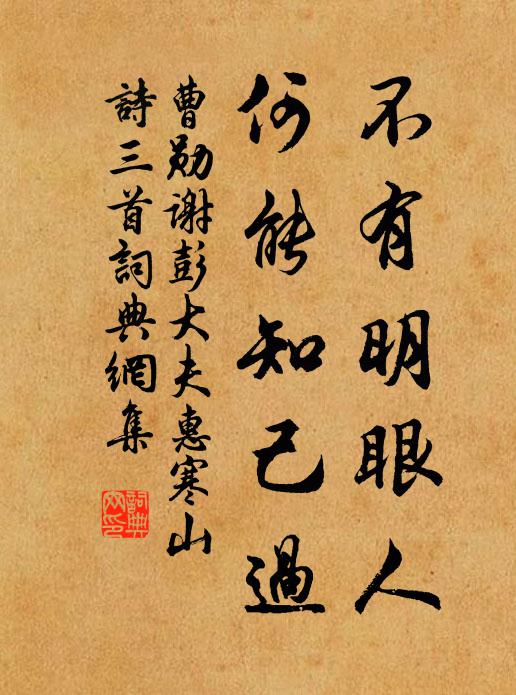 不有明眼人
何能知己過
曹勛謝彭大夫惠寒山
詩三首詞典網集
詞典网印